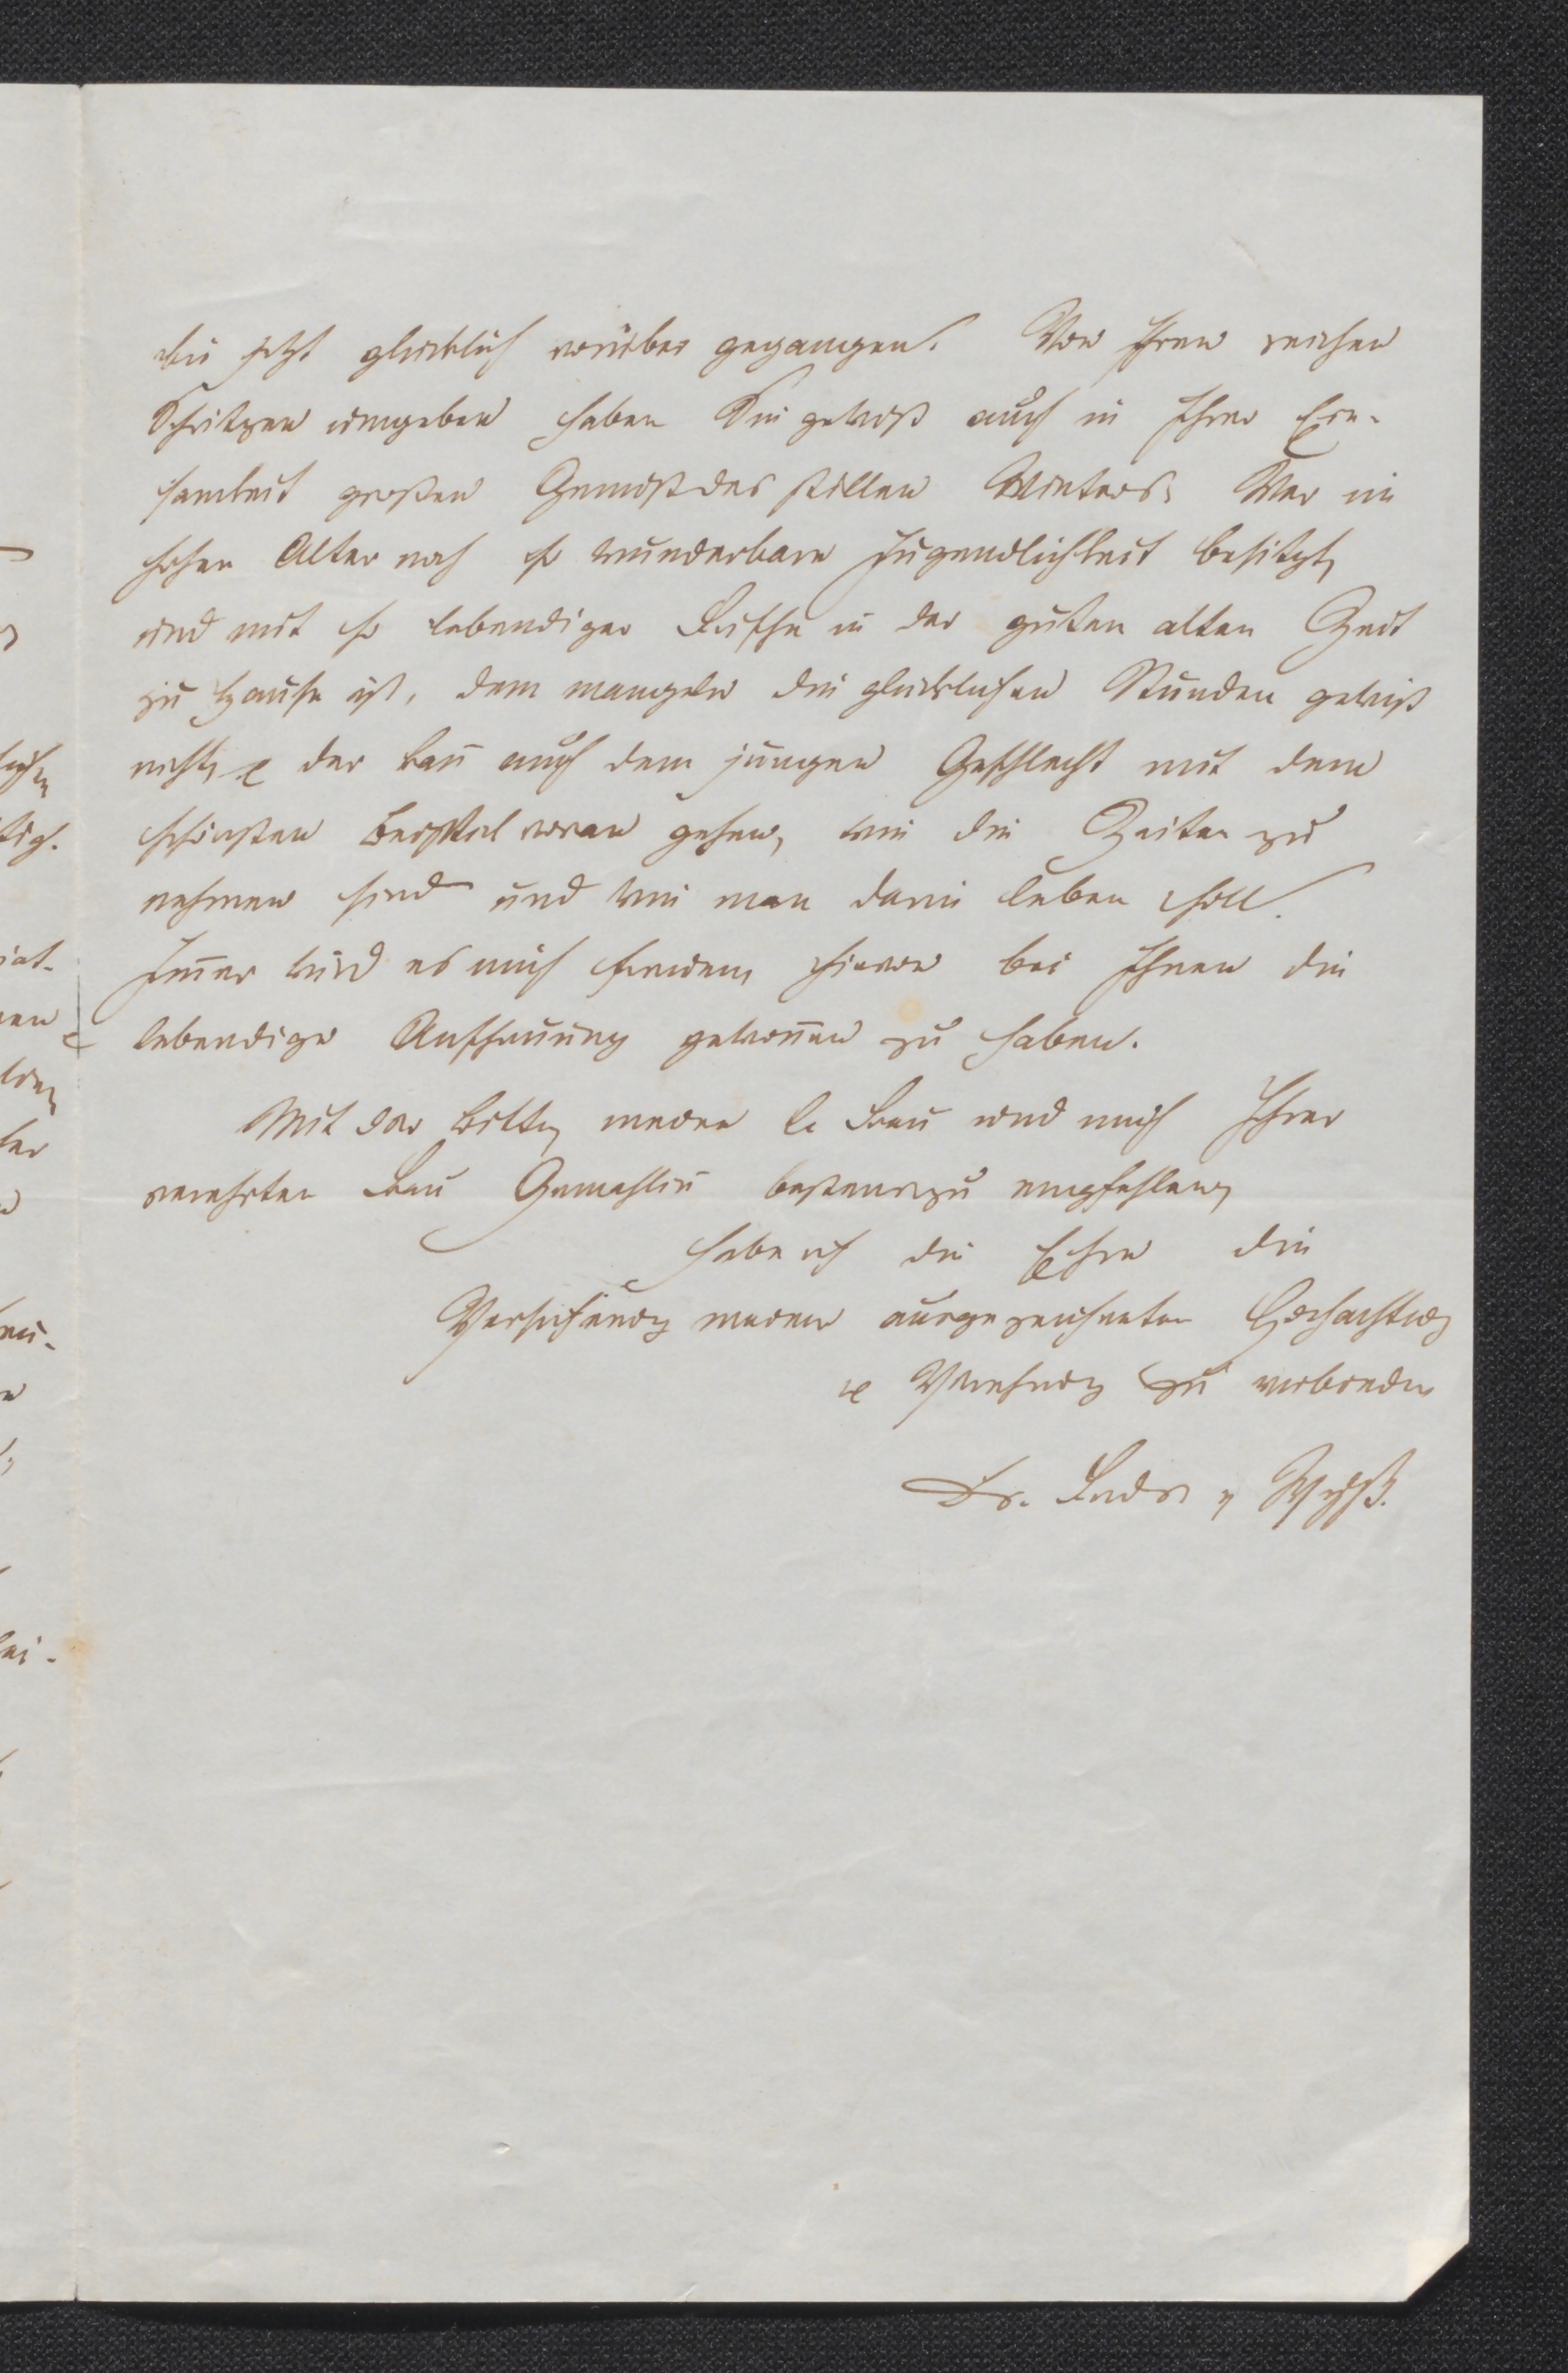 bis jetzt glücklich vorüber gegangen. Von Ihren reichen
Schätzen umgeben haben Sie gewiß auch in Ihrer Ein-
samkeit großen Genuß des stillen Winters. Wer im
hohen Alter noch so wunderbare Jugendlichkeit besitzt,
und mit so lebendiger Frische in der guten alten Zeit
zu Hause ist, dem mangeln die glücklichen Stunden gewiß
nicht, & der kan̄ auch dem jungen Geschlecht mit dem
schönsten Beispiel voran gehen, wie die Zeiten zu
nehmen sind und wie man darin leben soll.
Im̄er wird es mich freuen, hievon bei Ihnen die
lebendige Anschauung gewon̄en zu haben.
Mit der Bitte, meine l. Frau und mich Ihrer
verehrten Frau Gemahlin bestens zu empfehlen,
habe ich die Ehre die
Versicherung meiner ausgezeichneten Hochachtung
& Verehrung zu verbinden
Dr. Friedr. v. Wyß.